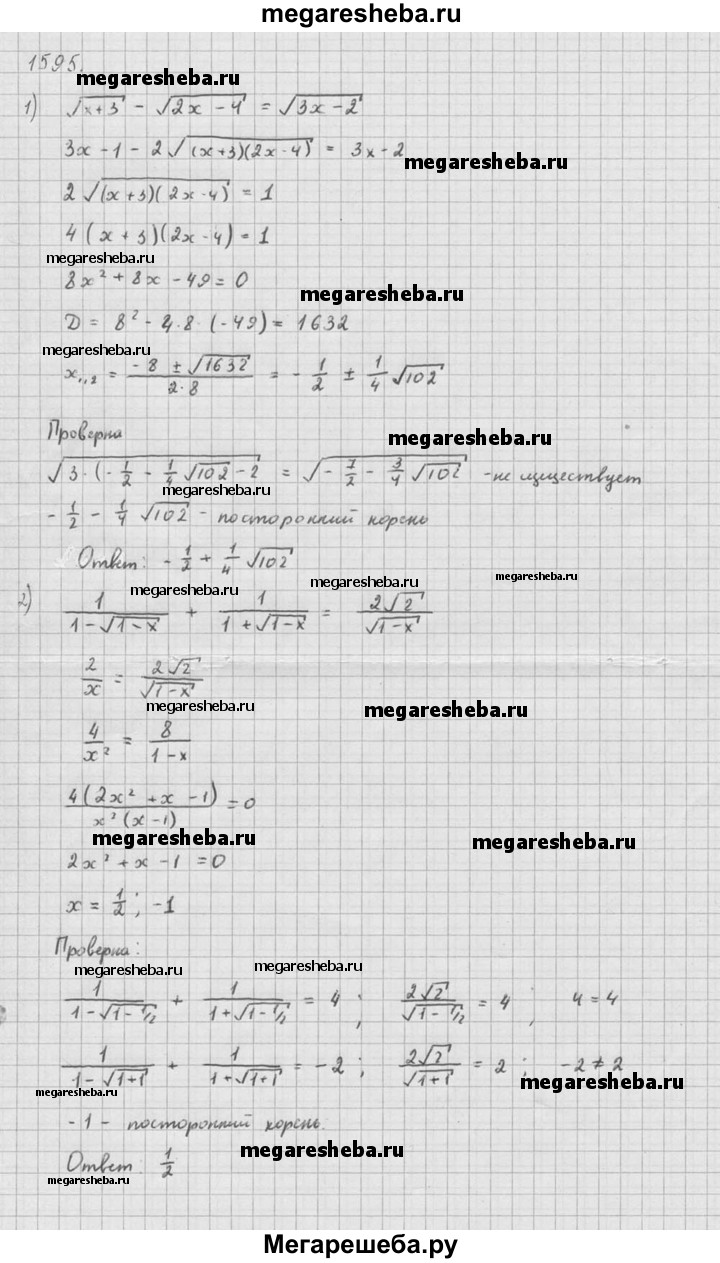 megaresheba.ru
1595.
megaresheba.ru
1) √(x+3) - √(2x-4) = √(3x-2)
3x-1-2√((x+3)(2x-4)) = 3x-2
megaresheba.ru
2√((x+3)(2x-4)) = 1
4(x+3)(2x-4) = 1
megaresheba.ru
8x² + 8x - 49 = 0
megaresheba.ru
D = 8² - 4·8·(-49) = 1632
megaresheba.ru
x₁,₂ = (-8 ± √1632)/(2·8) = -1/2 ± 1/4 √102
Проверка
megaresheba.ru
√(3·(-1/2 - 1/4 √102 - 2) = √(-7/2 - 3/4 √102) - не существует
megaresheba.ru
-1/2 - 1/4 √102 - посторонний корень
Ответ: -1/2 + 1/4 √102
megaresheba.ru megaresheba.ru megaresheba.ru
2) 1/(1-√(1-x)) + 1/(1+√(1-x)) = 2√2/√(1-x)
2/x = 2√2/√(1-x)
megaresheba.ru megaresheba.ru
4/x² = 8/(1-x)
4(2x²+x-1)/(x²(x-1)) = 0
megaresheba.ru megaresheba.ru
2x²+x-1 = 0
x = 1/2; -1
Проверка:
megaresheba.ru megaresheba.ru
1/(1-√(1-1/2)) + 1/(1+√(1-1/2)) = 4; 2√2/√(1-1/2) = 4; 4 = 4
1/(1-√(1+1)) + 1/(1+√(1+1)) = -2; 2√2/√(1+1) = 2; -2 ≠ 2
megaresheba.ru megaresheba.ru
-1 - посторонний корень.
megaresheba.ru
Ответ: 1/2
megaresheba.ru
Мегарешеба.ру